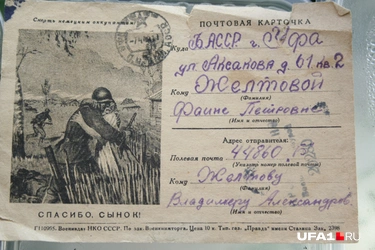 Смерть немецким оккупантам!
ПОЧТОВАЯ КАРТОЧКА
Куда БАССР г. Уфа
ул. Аксакова д. 61 кв. 2
Кому Желтовой
(Фамилия)
Фаине Петровне
(Имя и отчество)
Адрес отправителя:
Полевая почта 44860
(Укажите номер полевой почты)
Кому Желтову
(Фамилия)
Владимиру Александров
(Имя и отчество)
СПАСИБО, СЫНОК!
Воениздат НКО СССР. По зак. Цена 10 к. Тип. газ. „Правда“ имени Сталина. Зак. 2396
UFA1.RU